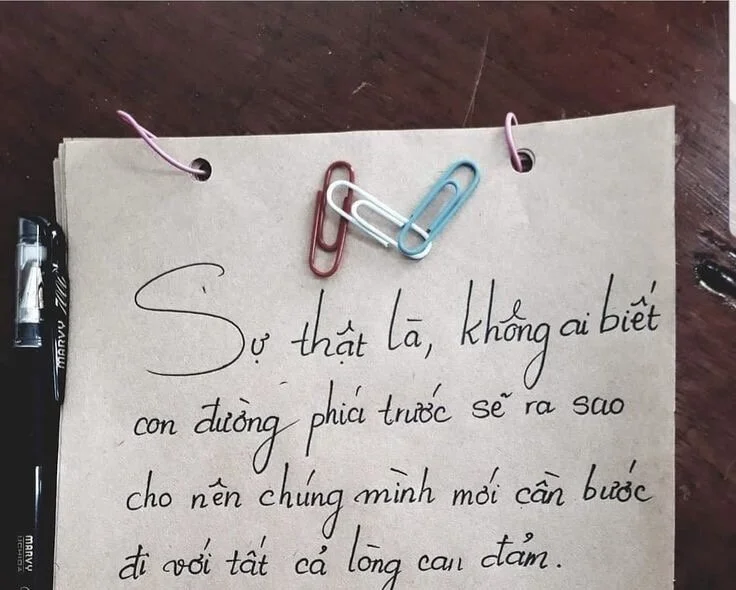 Sự thật là, không ai biết
con đường phía trước sẽ ra sao
cho nên chúng mình mới cần bước
đi với tất cả lòng can đảm.
MARVY
MARVY
UCHIDA